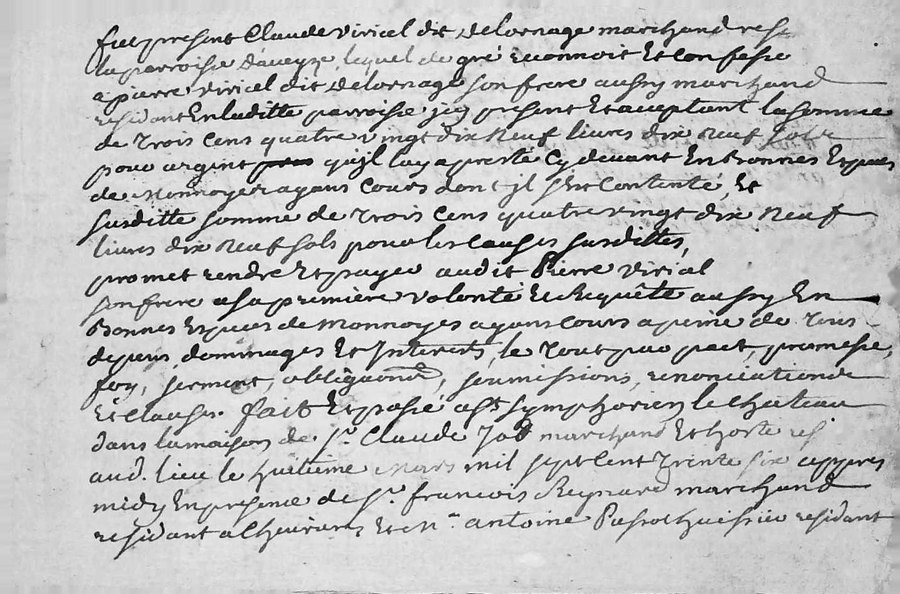 fut present Claude Viricel dit delornage marchand res.
la parroisse d'aveyze lequel de gré reconnoit Et Confesse
a pierre viricel dit delornage son frere aussy marchand
residant En laditte parroisse jcy present Et aceptant la somme
de trois cens quatre vingt dix neuf livres dix neuf sols
pour argent qu'jl luy a presté Cy devant En Bonnes Especes
de Monnoyes ayans cours dont jl s'Est Contenté, Et
susditte somme de trois cens quatre vingt dix neuf
livres dix neuf sols pour les causes susdittes,
promet rendre Et payer audit Pierre viricel
son frere a sa première volonté Et Requête aussy En
Bonnes Especes de Monnoyes ayans cours a peine de tous
depens dommages Et Interests, le tout par pact, promesse,
foy, serment, obligaons, soumissions, renonciation
Et clauses. fait Et passé a St Symphorien le chateau
dans la maison de Sr Claude Job marchand Et hoste res.
aud. lieu le huitieme Mars mil sept cent trente six appres
midy En presence de Sr francois Reynard marchand
residant a Et Mr antoine huissier residant